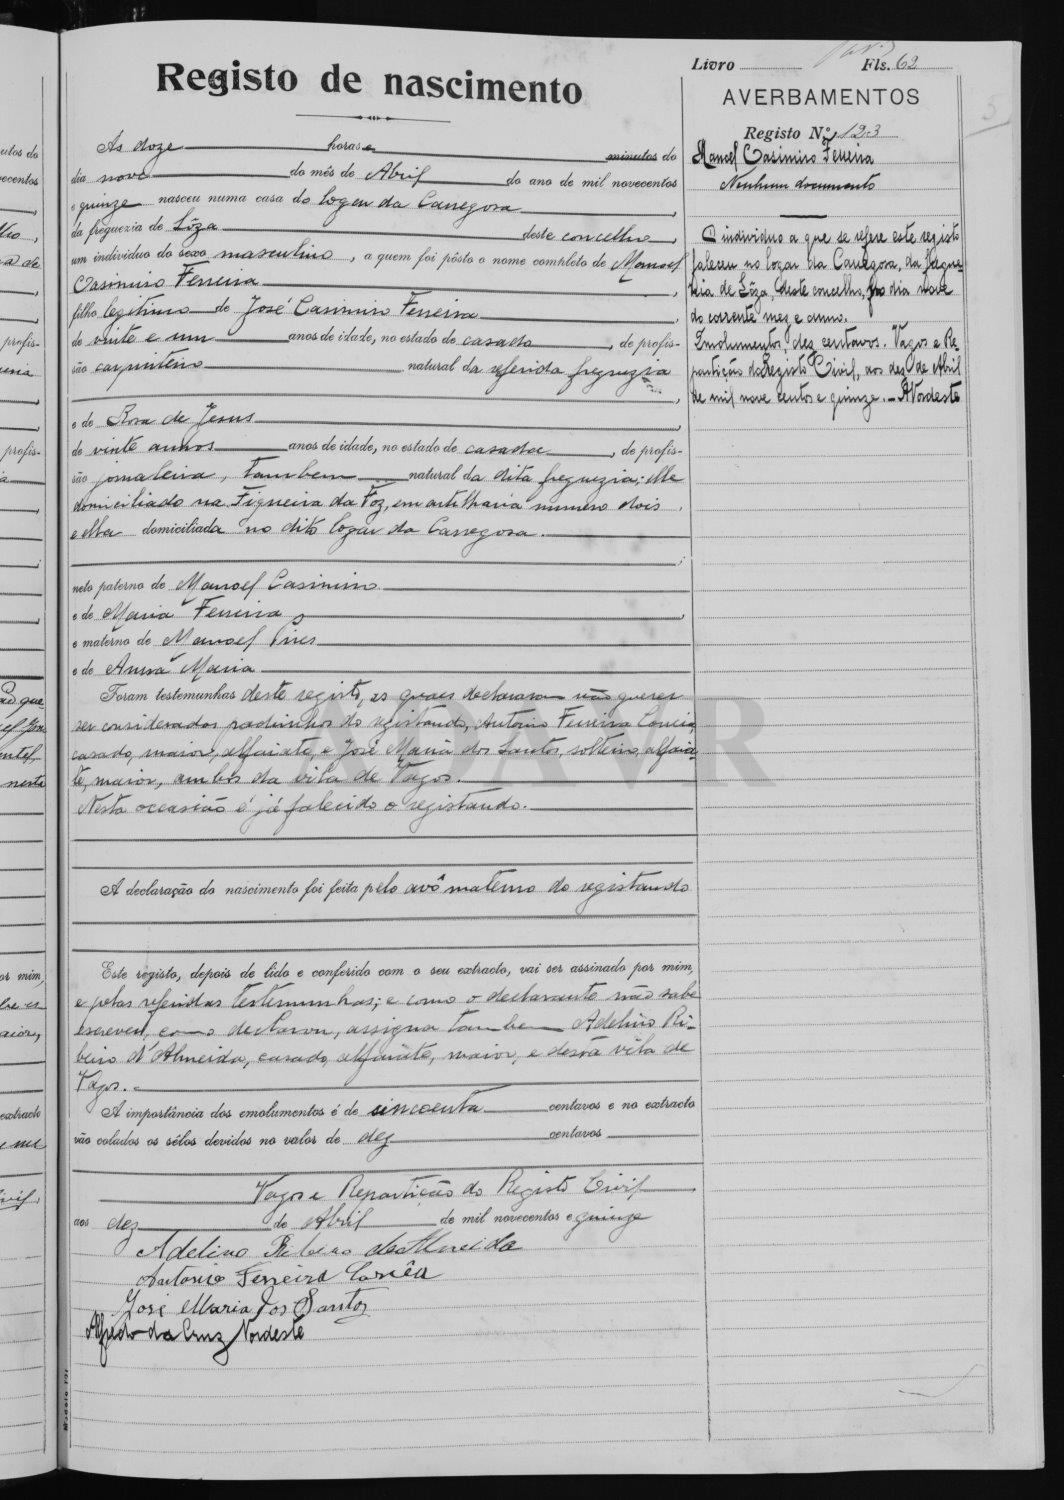 Registo de nascimento
Ás doze horas e minutos do
dia nove do mês de Abril do ano de mil novecentos
e quinze nasceu numa casa do logar da Carregosa,
da freguezia de Sôza deste concelho,
um individuo do sexo masculino, a quem foi pôsto o nome completo de Manoel
Casimiro Ferreira,
filho legitimo de José Casimiro Ferreira,
de vinte e um anos de idade, no estado de casado, de profis-
são carpinteiro natural da referida freguezia
e de Rosa de Jesus,
de vinte annos anos de idade, no estado de casada, de profis-
são jornaleira, tambem natural da dita freguezia; elle
domiciliado na Figueira da Foz, em artilharia numero dois
e ella domiciliada no dito logar da Carregosa.
neto paterno de Manoel Casimiro
e de Maria Ferreira,
e materno de Manoel Pires
e de Anna Maria
Foram testemunhas deste registo, as quaes declararam não querer
ser considerados padrinhos do registando, Antonio Ferreira Correia,
casado, maior, alfaiate, e José Maria dos Santos, solteiro, alfaia-
te, maior, ambos da vila de Vagos.
Nesta occasião é já falecido o registando.
A declaração do nascimento foi feita pelo avô materno do registando
Este registo, depois de lido e conferido com o seu extracto, vai ser assinado por mim,
e pelas referidas testemunhas; e como o declarante não sabe
escrever, como declarou, assigna tambem Adelino Ri-
beiro d'Almeida, casado, alfaiate, maior, e desta vila de
Vagos.
A importância dos emolumentos é de cincoenta centavos e no extracto
vão colados os sêlos devidos no valor de dez centavos
Vagos e Repartição do Registo Civil
aos dez de Abril de mil novecentos e quinze
Adelino Ribeiro de Almeida
Antonio Ferreira Corrêa
José Maria dos Santos
Alfredo da Cruz Nordeste
Livro Fls. 62
AVERBAMENTOS
Registo N.º 123
Manoel Casimiro Ferreira
Nenhum documento
O individuo a que se refere este registo
faleceu no logar da Carregosa, da fregue-
zia de Sôza, deste concelho, no dia nove
do corrente mez e anno.
Emolumentos dez centavos. Vagos e Re-
partição do Registo Civil, aos dez de Abril
de mil nove centos e quinze. - A Nordeste
5
ADAVR